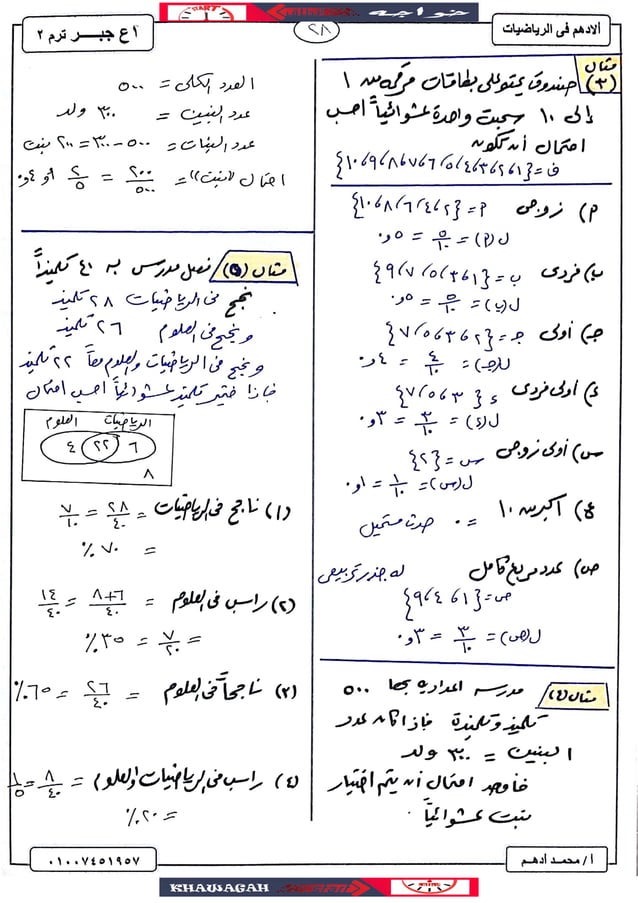 خواجه
START
ألادهم فى الرياضيات
٢٨
١ ع جبر ترم ٢
مثال (٣) صندوق يحتوى على بطاقات مرقمه من ١
إلى ١٠ سحبت واحدة عشوائياً احسب
احتمال أن تكون
ف = {١،٢،٣،٤،٥،٦،٧،٨،٩،١٠}
(م) زوجى م = {٢،٤،٦،٨،١٠}
ل(م) = ٥/١٠ = ٥و٠
ب) فردى ب = {١،٣،٥،٧،٩}
ل(ب) = ٥/١٠ = ٥و٠
جـ) أولى جـ = {٢،٣،٥،٧}
ل(جـ) = ٤/١٠ = ٤و٠
ء) أولى فردى ء {٣،٥،٧}
ل(ء) = ٣/١٠ = ٣و٠
س) أولى زوجى س = {٢}
ل(س) = ١/١٠ = ١و٠
ع) أكبر من ١٠ = ٠ حدث مستحيل
ص) عدد مربع كامل له جذر تربيعى
ص = {١،٤،٩}
ل(ص) = ٣/١٠ = ٣و٠
مثال (٤) مدرسه اعداديه بها ٥٠٠
تلميذ وتلميذة فإذا كان عدد
البنين = ٣٠٠ ولد
فأوجد احتمال أن يتم اختيار
بنت عشوائياً
العدد الكلى = ٥٠٠
عدد البنين = ٣٠٠ ولد
عدد البنات = ٥٠٠ - ٣٠٠ = ٢٠٠ بنت
احتمال "بنت" = ٢٠٠/٥٠٠ = ٢/٥ أو ٤و٠
مثال (٥) فصل مدرسى به ٤٠ تلميذاً
نجح فى الرياضيات ٢٨ تلميذ
ونجح فى العلوم ٢٦ تلميذ
ونجح فى الرياضيات والعلوم معاً ٢٢ تلميذ
فإذا اختير تلميذ عشوائياً احسب احتمال
الرياضيات العلوم
٦ ٢٢ ٤
٨
(١) ناجح فى الرياضيات = ٢٨/٤٠ = ٧/١٠
= ٧٠٪
(٢) راسب فى العلوم = ٨+٦/٤٠ = ١٤/٤٠
= ٧/٢٠ = ٣٥٪
(٣) ناجحاً فى العلوم = ٢٦/٤٠ = ٦٥٪
(٤) راسب فى الرياضيات والعلوم = ٨/٤٠ = ١/٥
= ٢٠٪
أ/محمد أدهم
٠١٠٠٧٤٥١٩٥٧
KHAWAGAH